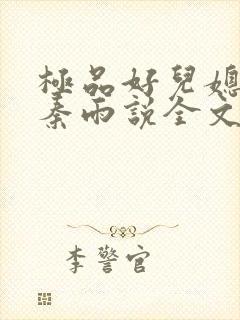 極品好兒媳
秦雨説全文
李警官